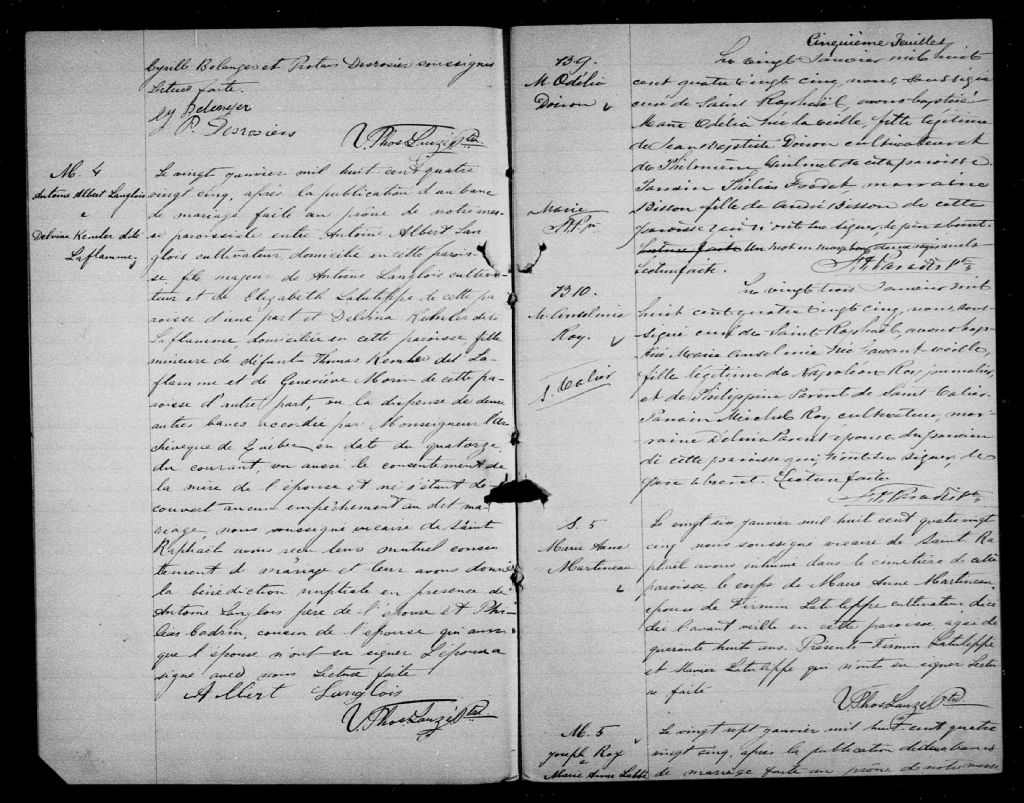 Cyrille Belanger et Protais Desrosier soussignés
Lecture faite.
Cy Belenger
P. Desrosiers
V. Thos Lauzé Ptre
M. 4
Antoine Albert Langlois
&
Delvina Kemler dite
Laflamme
Le vingt janvier mil huit cent quatre
vingt cinq, après la publication d'un banc
de mariage faite au prône de notre mes-
se paroissiale entre Antoine Albert Lan
glois cultivateur, domicilié en cette parois-
se, fils majeur de Antoine Langlois cultiva-
teur et de Elizabeth Latulippe de cette pa
roisse d'une part et Delvina Kemler dite
Laflamme, domiciliée en cette paroisse fille
mineure de défunt Thomas Kemler dit La-
flamme et de Geneviève Morin de cette pa-
roisse d'autre part, vu la dispense de deux
autres bancs accordée par Monseigneur l'Ar
chevêque de Québec en date du quatorze
du courant, vu aussi le consentement de
la mère de l'épouse et ne s'étant dé-
couvert aucun empêchement au dit ma-
riage, nous soussigné vicaire de Saint
Raphaël avons reçu leur mutuel consen
tement de mariage et leur avons donné
la bénédiction nuptiale en presence de
Antoine Langlois père de l'époux et Phi-
léas Cadrin, cousin de l'épouse qui ainsi
que l'épouse n'ont su signer L'époux a
signé avec nous Lecture faite
Albert Langlois
V. Thos Lauzé Ptre
Cinquième Feuillet
B 9.
M. Odélie
Doiron
Marie
Le vingt Janvier mil huit
cent quatre vingt cinq, nous soussigné
curé de Saint Raphaël, avons baptisé
Marie Odélie née la veille, fille légitime
de Jean Baptiste Doiron cultivateur et
de Philomène de cette paroisse.
Parrain marraine
Bisson fille de André Bisson de cette
paroisse qui n'ont su signer, le père absent.
Lecture faite Un mot en marge bon
Lecture faite.
Paradis Ptre
B 10.
M. Anselmie
Roy.
S. Valier
Le vingt trois Janvier mil
huit cent quatre vingt cinq, nous sous
signé curé de Saint Raphaël, avons bap-
tisé Marie Anselmie née l'avant veille,
fille légitime de Napoléon Roy journalier
et de Philippine Parent de Saint Valier.
Parrain Michel Roy cultivateur, mar-
raine Delvina Parent épouse du parrain
de cette paroisse qui n'ont su signer, le
père absent. Lecture faite.
Paradis Ptre
S. 5
Marie Anne
Martineau
Le vingt six janvier mil huit cent quatre vingt
cinq nous soussigné vicaire de Saint Ra
phaël avons inhumé dans le cimetière de cette
paroisse le corps de Marie Anne Martineau
épouse de Firmin Latulippe cultivateur décé
dée l'avant veille en cette paroisse, agée de
quarante huit ans. Présents Firmin Latulippe
et Xavier Latulippe qui n'ont su signer Lectu
re faite
V. Thos Lauzé Ptre
M. 5
Joseph Roy
&
Marie Anne Labbé
Le vingt sept janvier mil huit cent quatre
vingt cinq, après la publication de deux bancs
de mariage faite au prône de notre messe